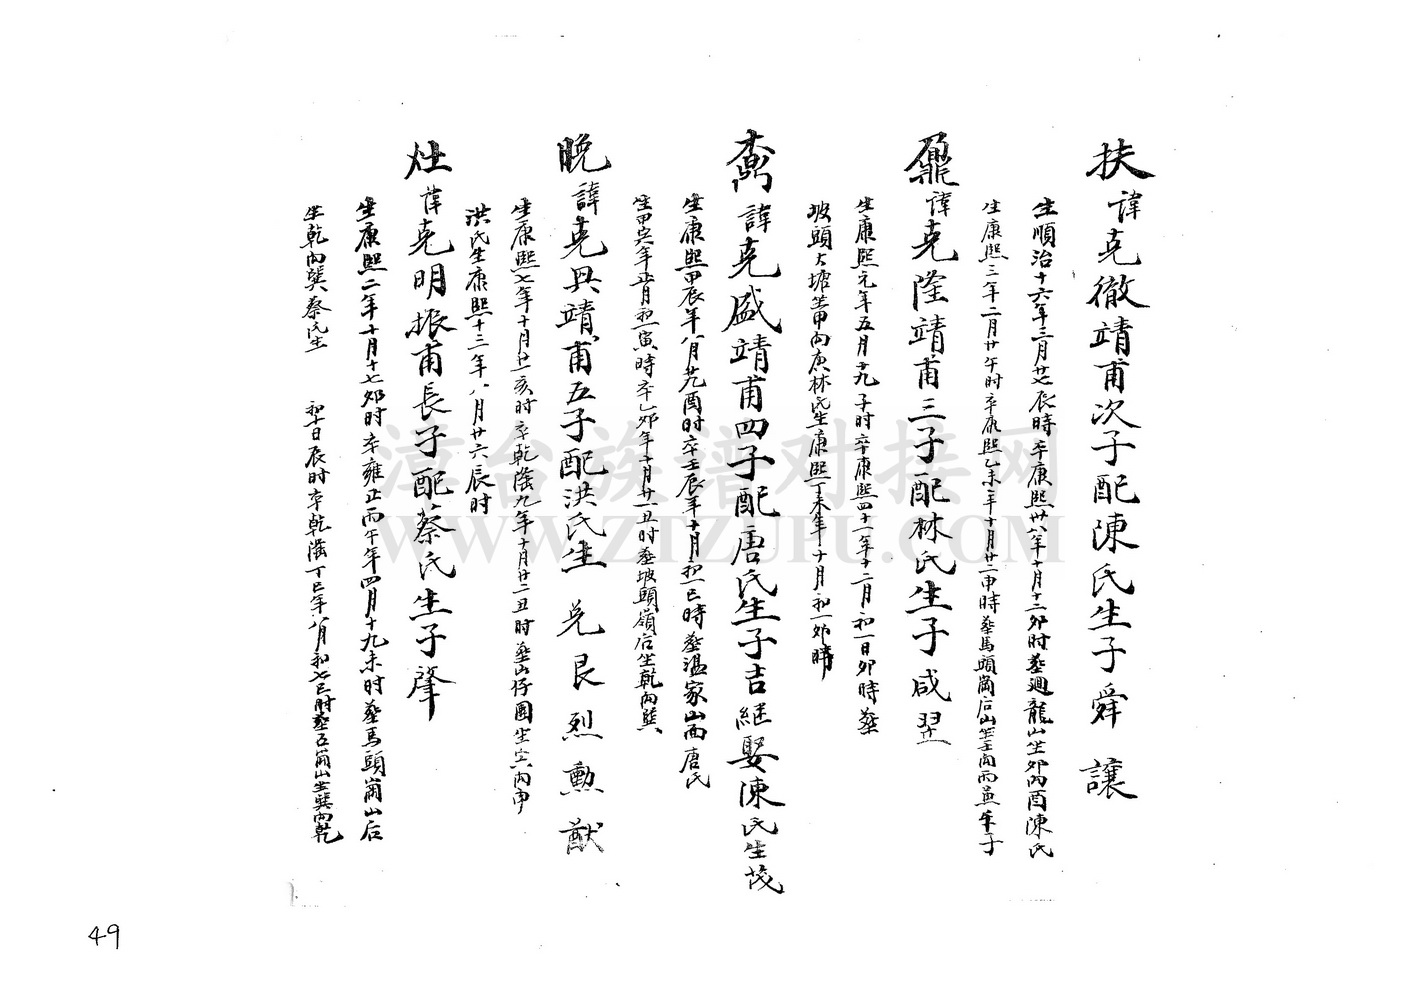 扶 諱克徹靖甫次子配陳氏生子舜 讓
生順治十六年三月廿七辰時卒康熙卅八年十月十二卯时葬迴龍山坐卯向酉陳氏
生康熙三年十二月廿午时卒康熙乙未年十月廿二申時葬馬頭崗后山坐壬向丙兼子
諱克隆靖甫三子配林氏生子咸翌
生康熙元年五月十九子时卒康熙四十一年十二月初一日卯時葬
坡頭大塘坐甲向庚林氏生康熙丁未年十月初一卯時
諱克盛靖甫四子配唐氏生子吉継娶陳氏生茂
生康熙甲辰年八月廿九酉时卒壬辰年十月初一巳時葬溫家山面唐氏
生甲寅年正月初一寅時卒乙卯年十月廿一丑时葬坡頭嶺后坐乾向巽
晚 諱克興靖甫五子配洪氏生 兑艮烈勲猷
生康熙七年十月廿一亥时卒乾隆九年十月廿二丑时葬山仔園坐寅向申
洪氏生康熙十三年八月廿六辰时
灶 諱克明振甫長子配蔡氏生子肇
生康熙二年十月十七卯时卒雍正丙午年四月十九未时葬馬頭崗山后
坐乾向巽蔡氏生 初十日辰时卒乾隆丁巳年八月初七巳时葬后崗山坐巽向乾
漳台族谱对接网
WWW.ZTZUPU.COM
49